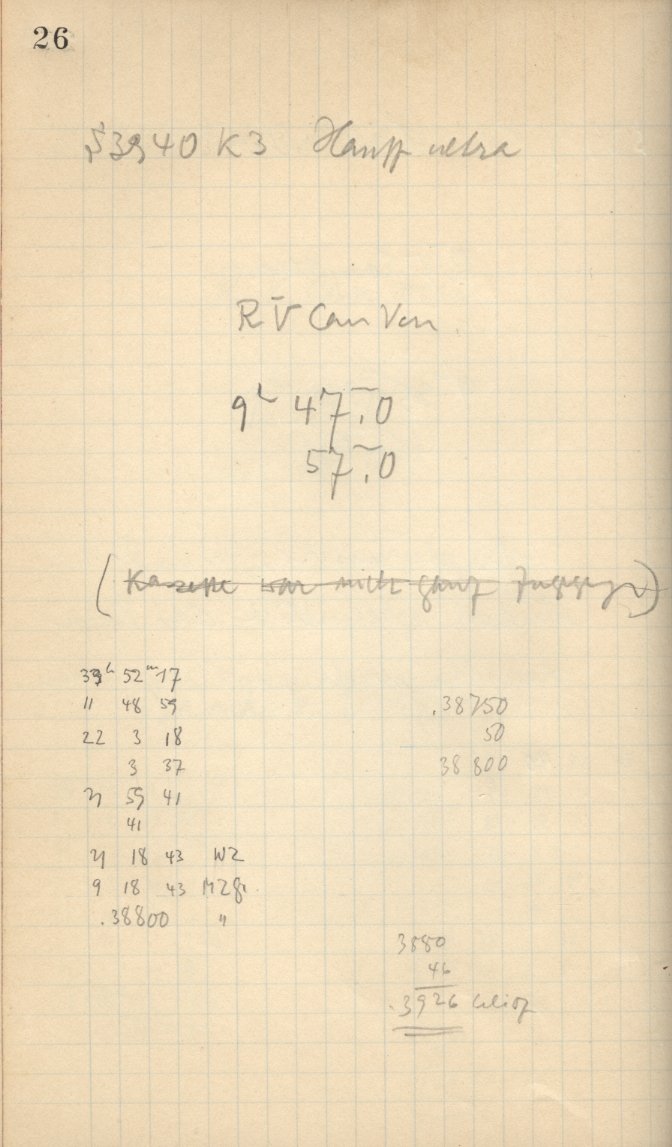 26
S3940 K3 Hauff ultra
RV Can Ven
9h 47m.0
57m.0
(Kassette war nicht ganz )
33h 52m 17
11 48 59
22 3 18
3 37
21 59 41
41
21 18 43 WZ
9 18 43 MZGr.
.38800 "
.38750
50
38800
3880
46
.3926 helioz